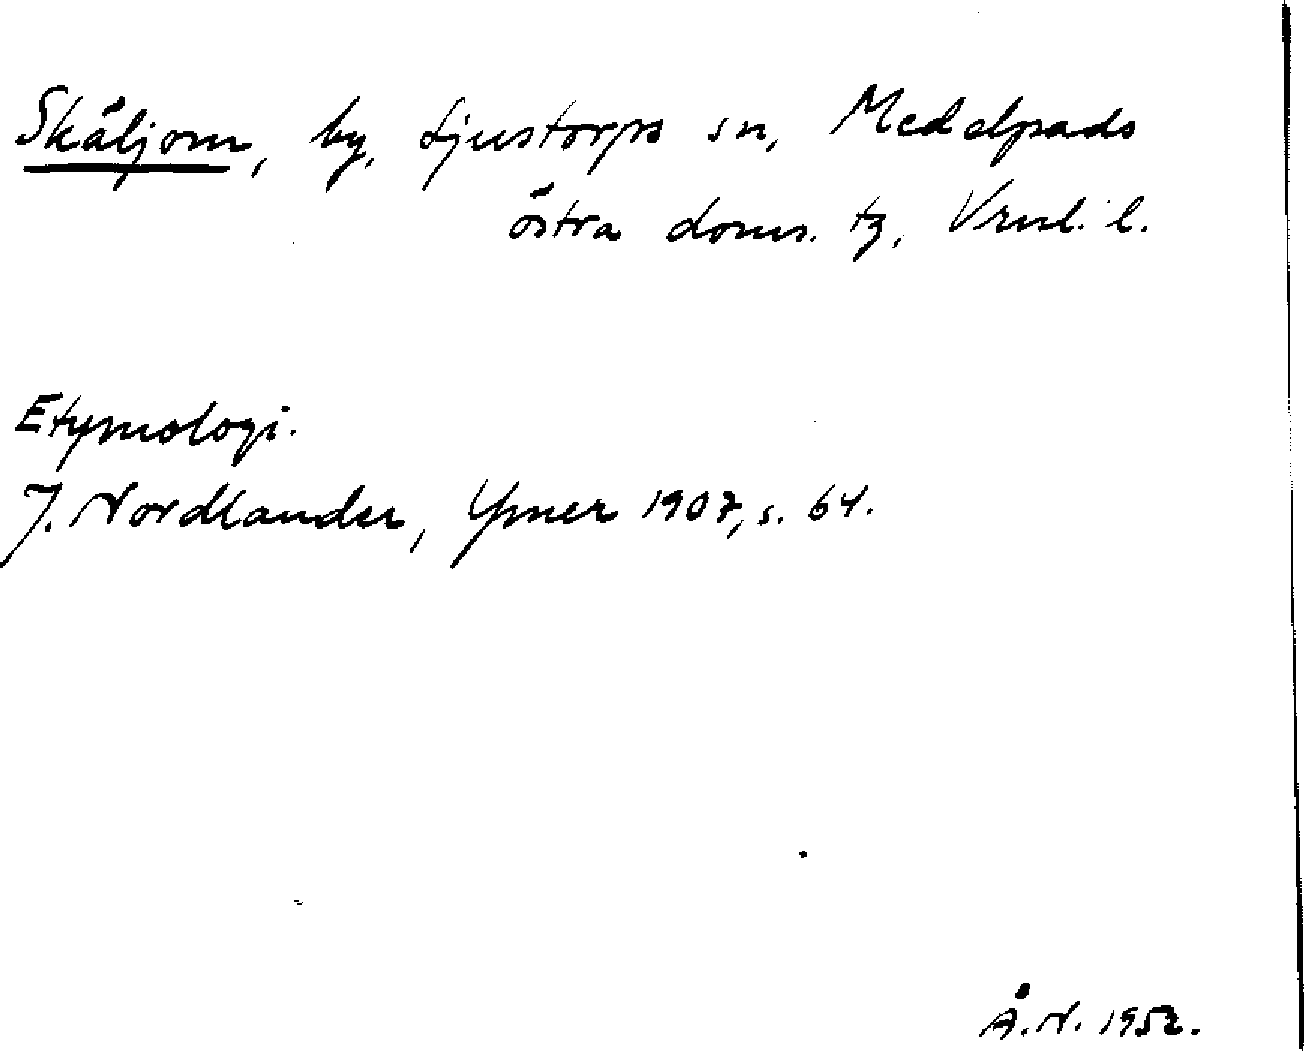 Skäljom, by, Ljustorps sn, Medelpads
östra doms. tg, Vrnl. l.
Etymologi.
J. Nordlander, Ymer 1907, s. 64.
Å. N. 1952.